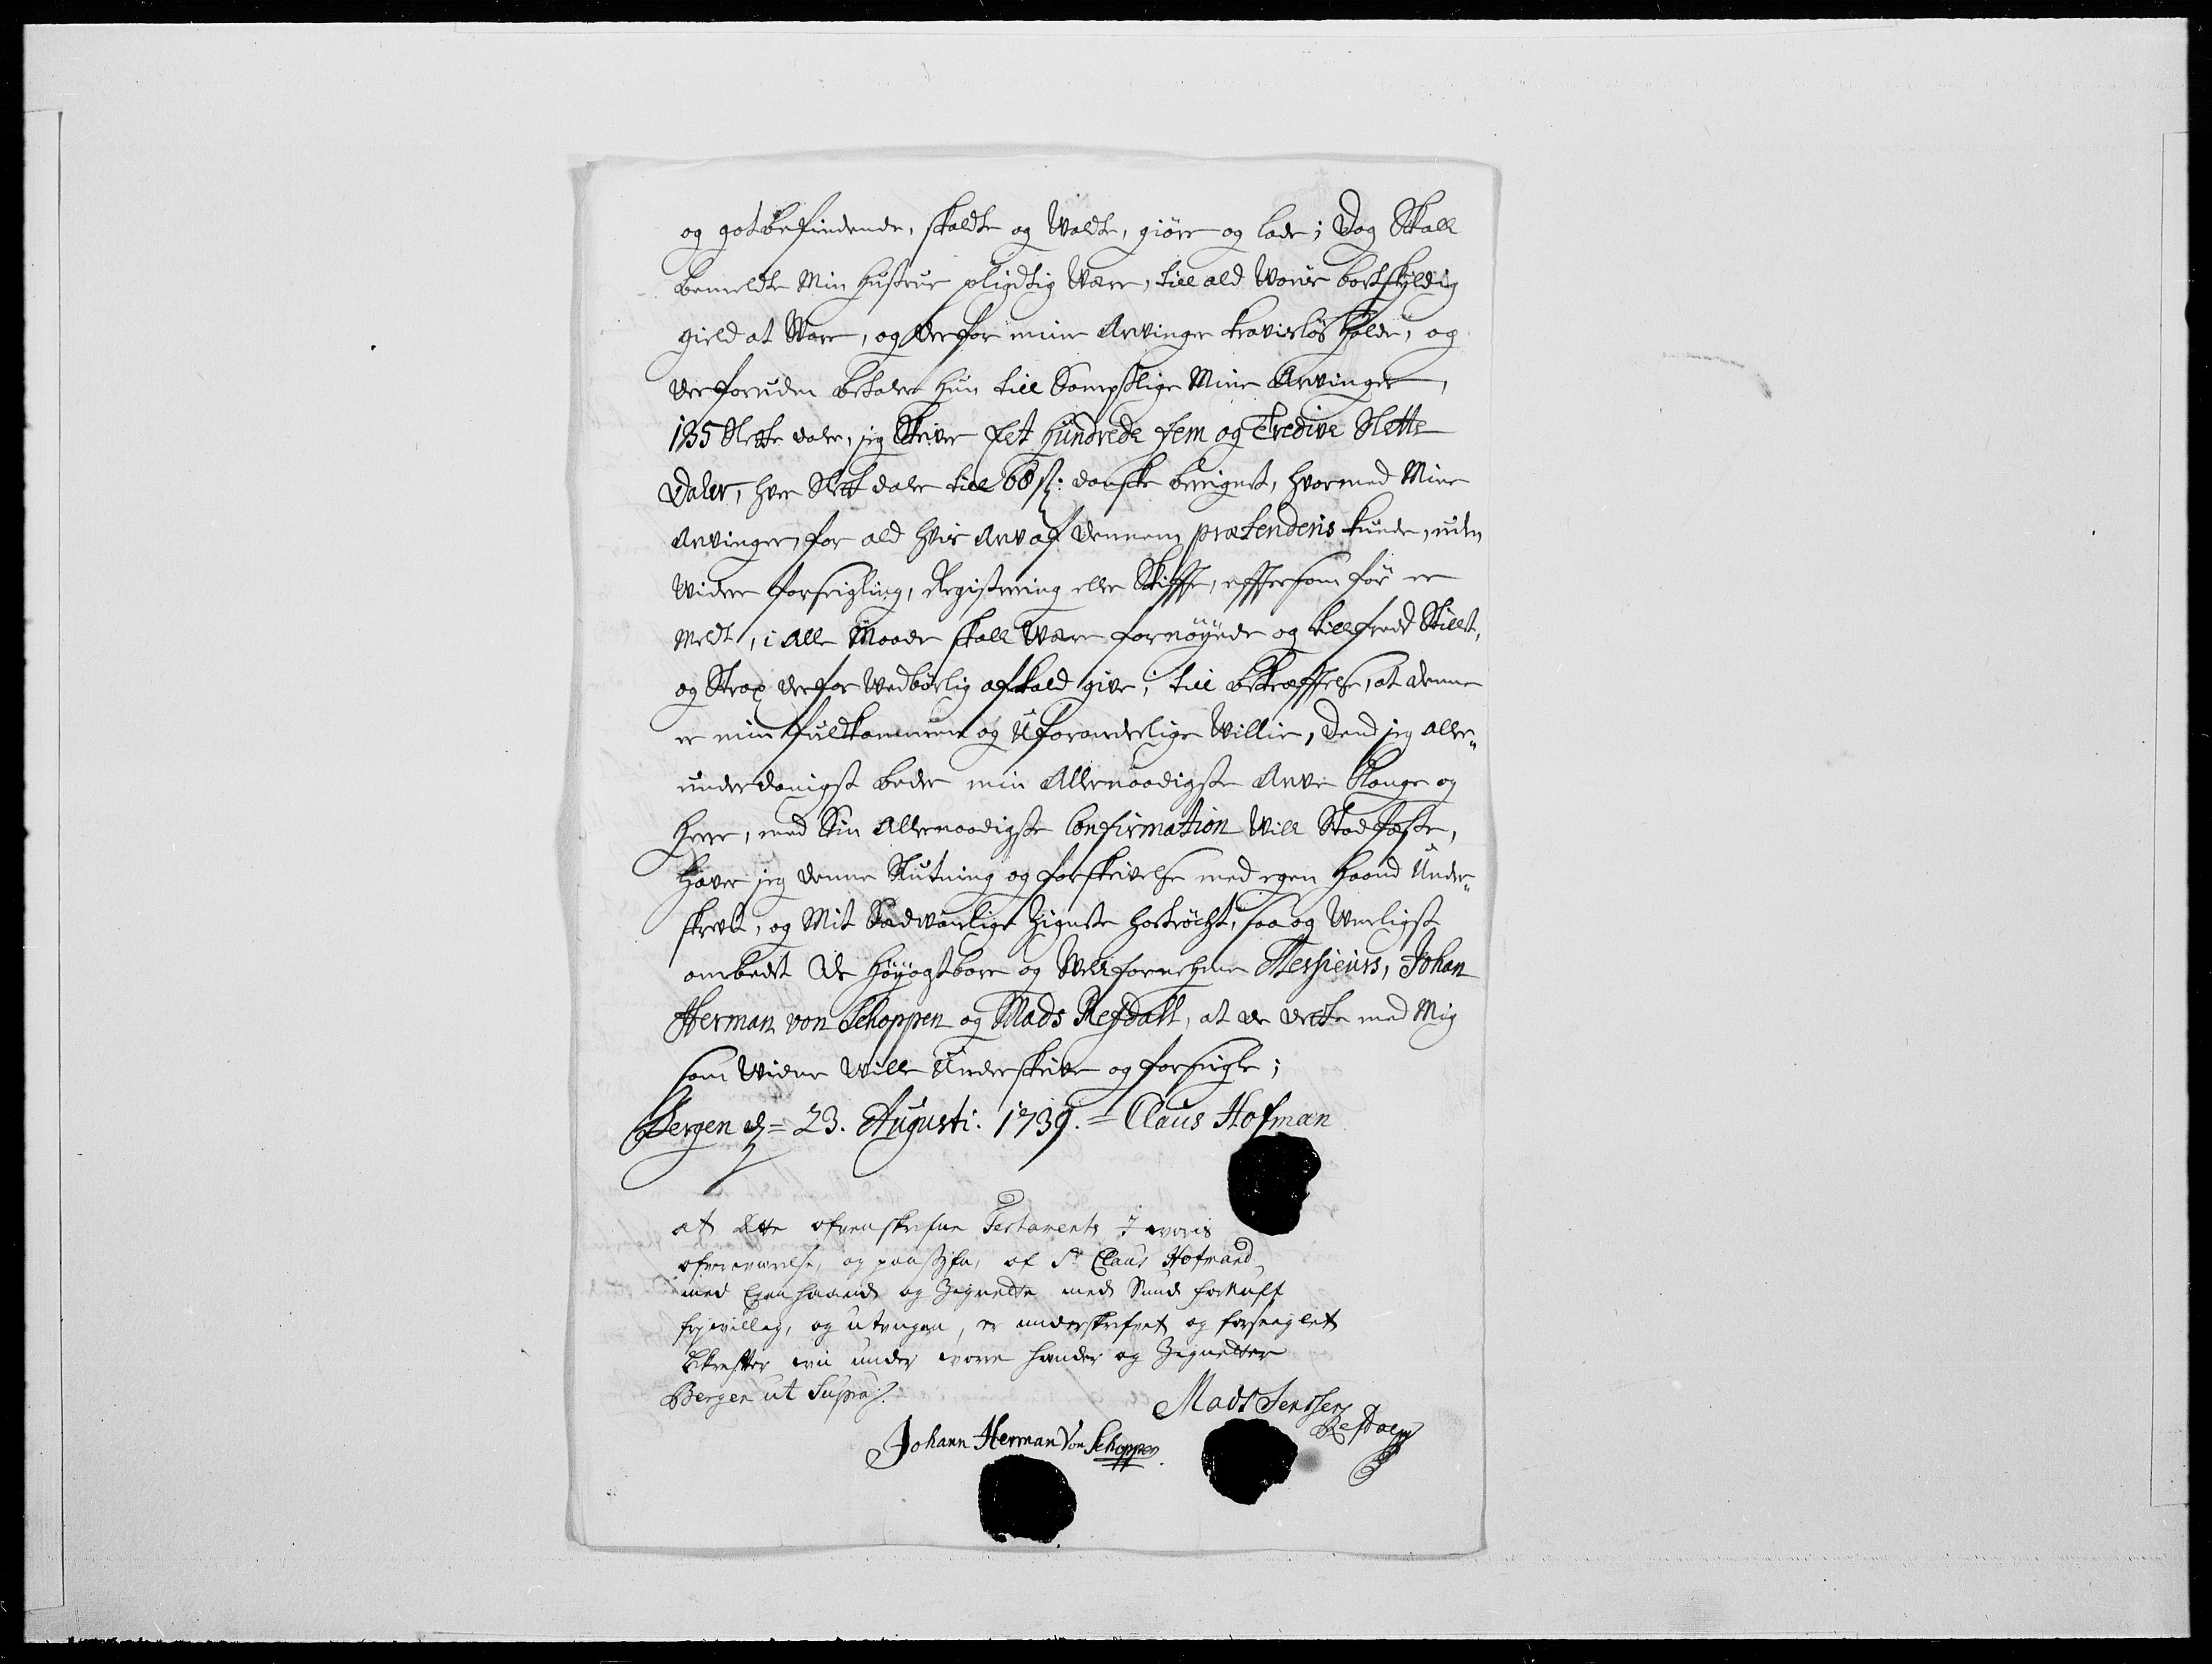 og got befindende, skalte og Walte, giöre og lade; Dog Skall
bemeldte Min Hustrue pligtig Være, till ald Woris bortskyldig
gield at Svare, og derfor mine Arvinger kravislös holde, og
der foruden betaler hun till Samptlige Mine Arvinger,
135 Slette daler, jeg Skriver Eet Hundrede fem og Tredive Slette
Daler, hver Slet daler till 66 ß: danske bereignet, hvormed Mine
Arvinger, for ald hvis Arv af dennem prætenderis kunde, uden
Widere forseigling, Registering eller Skiffte, efftersom för er
Meldt, i Alle Maader skall Være fornöyede og tillfreds Stillet,
og Strax derfor Wedbörlig afkald give; till bekræfftelse, at denne
er min fuldkommen og Uforanderlige Willie, Dend jeg aller„
underdanigst beder min Allernaadigste Arve Konge og
Herre, med Sin Allernaadigste Confirmation Will Stadfæste,
Haver jeg denne Slutning og forskrivelse med egen Haand Under„
skrevet, og Mit Sædvanlige Zignete hoströgt, saa og Wenligst
ombedet De Höyagtbare og Velfornehme Messieurs, Johan
Herman von Schoppen og Mads Refdall, at de dette med Mig
som Widne Wille Underskrive og forseigle;
Bergen d = 23. Augusti: 1739. = Claus Hofman
at dette ofvenskrefne Testamente I woris
ofverværelse, og paasÿn, af Sr Claus Hofmand
med Egen haand og Zignette med Sund fornuft
frjvillig, og utvungen, er underskrefvet og forseiglet
Bekrefter wii under wore hender og Zignetter
Bergen ut Supra
Mads Jenssen
Refdall
Johann Herman Von Schoppen